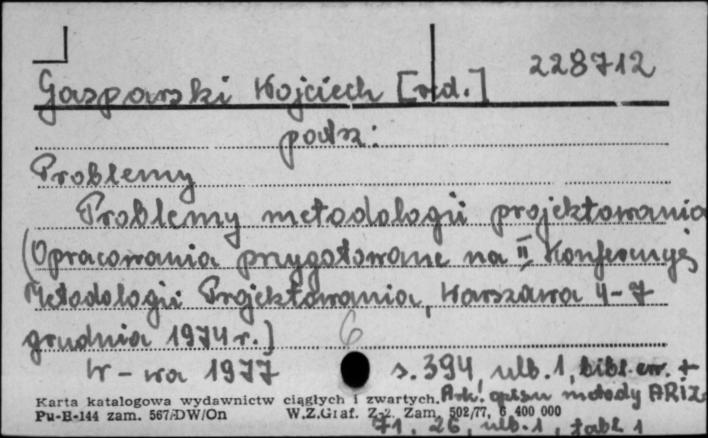 228712
Gasparski Wojciech [red.]
patrz:
Problemy
Problemy metodologii projektowania
(Opracowania przygotowane na II Konferencję
Metodologii Projektowania, Warszawa 4-7
grudnia 1974 r.]
6
W-wa 1977 s. 394 nlb. 1, bibl. err. +
Ark. opisu metody ARIZ
Karta katalogowa wydawnictw ciągłych i zwartych.
Pu-B-144 zam. 567/DW/On W.Z.Graf. Z-2. Zam. 502/77, 6 400 000
71, 26, nlb. 1, tabl. 1